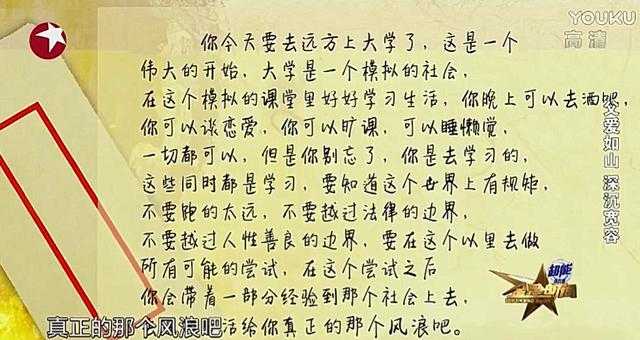 YOUKU
高清
你今天要去远方上大学了，这是一个
伟大的开始，大学是一个模拟的社会，
在这个模拟的课堂里好好学习生活，你晚上可以去酒吧，
你可以谈恋爱，你可以旷课，可以睡懒觉，
一切都可以，但是你别忘了，你是去学习的，
这些同时都是学习，要知道这个世界上有规矩，
不要跑的太远，不要越过法律的边界，
不要越过人性善良的边界，要在这个以里去做
所有可能的尝试，在这个尝试之后
你会带着一部分经验到那个社会上去，
活给你真正的那个风浪吧。
父爱如山 深沉宽容
超能
真正的那个风浪吧